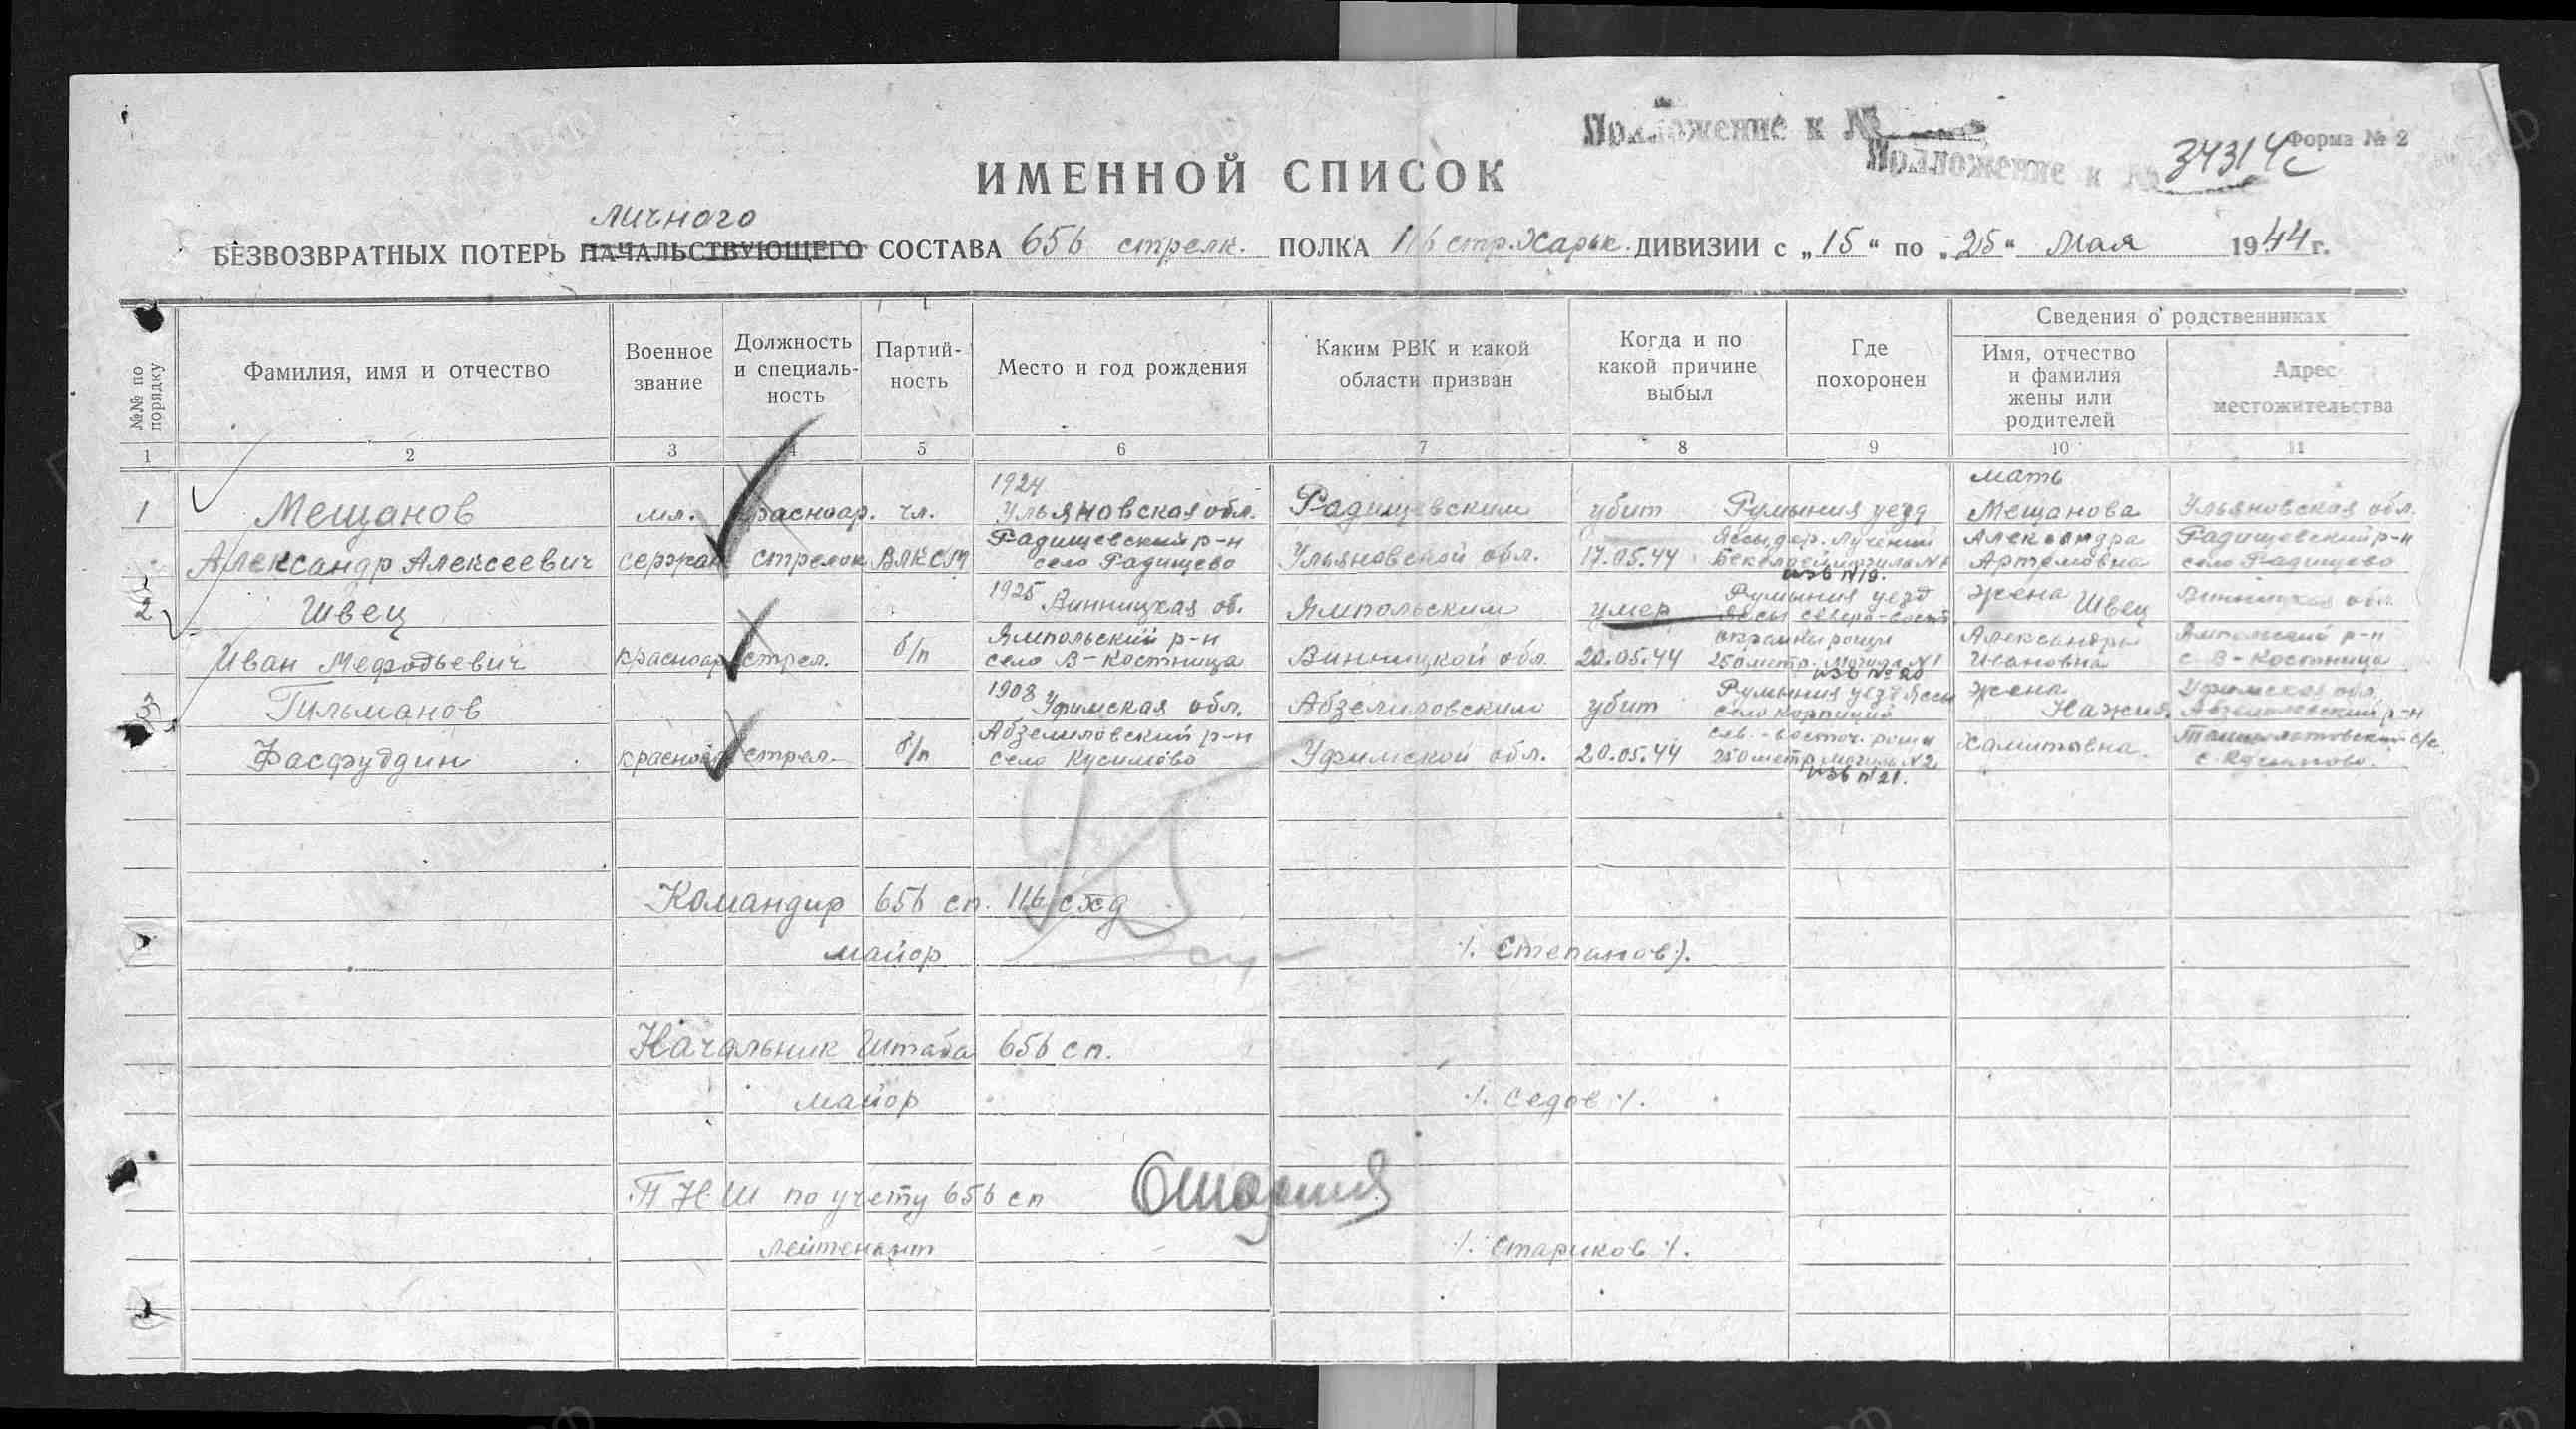 Приложение к №
Приложение к № 34314с
Форма № 2
ИМЕННОЙ СПИСОК
личного
БЕЗВОЗВРАТНЫХ ПОТЕРЬ НАЧАЛЬСТВУЮЩЕГО СОСТАВА 656 стрелк. ПОЛКА 116 стр. Харьк. ДИВИЗИИ с „15“ по „25“ Мая 1944 г.
№№ по порядку
Фамилия, имя и отчество
Военное звание
Должность и специаль-ность
Партий-ность
Место и год рождения
Каким РВК и какой области призван
Когда и по какой причине выбыл
Где похоронен
Сведения о родственниках
Имя, отчество и фамилия жены или родителей
Адрес местожительства
1 2 3 4 5 6 7 8 9 10 11
1924 мать
1 Мещанов мл. красноар. чл. Ульяновская обл. Радищевским убит Румыния уезд Мещанова Ульяновская обл.
Радищевский р-н Яссы Александра Радищевский р-н
Александр Алексеевич сержан стрелок ВЛКСМ село Радищево Ульяновской обл. 17.05.44 Артемовна село Радищево
изв №19.
2 Швец 1925 Винницкая об. Ямпольским умер Румыния уезд Жена Швец Винницкая обл.
Яссы северо-вост
Ямпольский р-н окраины рощи Александра Ямпольский р-н
Иван Мефодьевич красноар стрел. б/п село В-Костница Винницкой обл. 20.05.44 250 метр. могила №1 Ивановна с. В-Костница
изв №20
3 Гильманов 1908 Уфимская обл. Абзелиловским убит Румыния уезд Яссы Жена Нажия Уфимская обл.
село Абзелиловский р-н
Абзелиловский р-н сев.-восточ. рощи с/с.
Фасфуддин красноар стрел. б/п село Кусимово Уфимской обл. 20.05.44 250 метр могила №2 Хамитовна. с. Кусимово.
изв №21.
Командир 656 сп. 116 схд
майор /. Степанов /.
Начальник Штаба 656 сп.
майор /. Седов /.
ПНШ по учету 656 сп
лейтенант /. Стариков /.